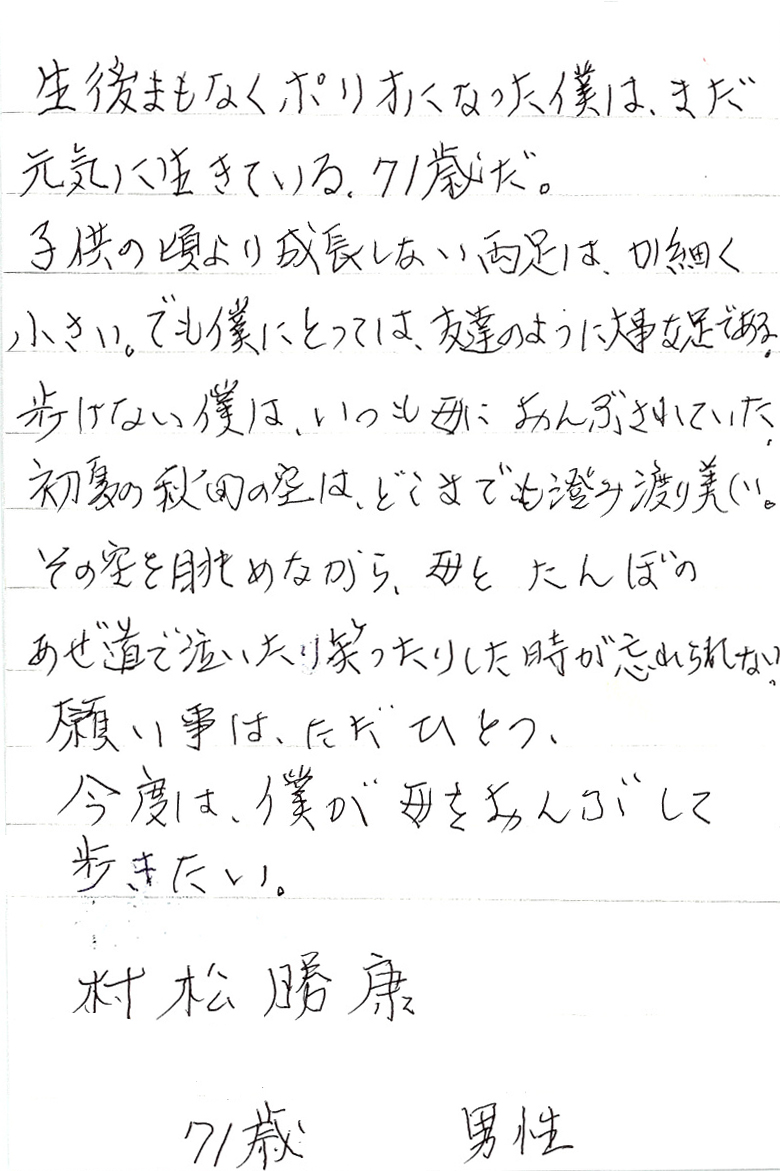 生後まもなくポリオになった僕は、まだ
元気に生きている、71歳だ。
子供の頃より成長しない両足は、か細く
小さい。でも僕にとっては、友達のように大事な足である。
歩けない僕は、いつも母におんぶされていた。
初夏の秋田の空は、どこまでも澄み渡り美しい。
その空を眺めながら、母と たんぼの
あぜ道で泣いたり笑ったりした時が忘れられない。
願い事は、ただひとつ、
今度は、僕が母をおんぶして
歩きたい。
村松勝康
71歳 男性